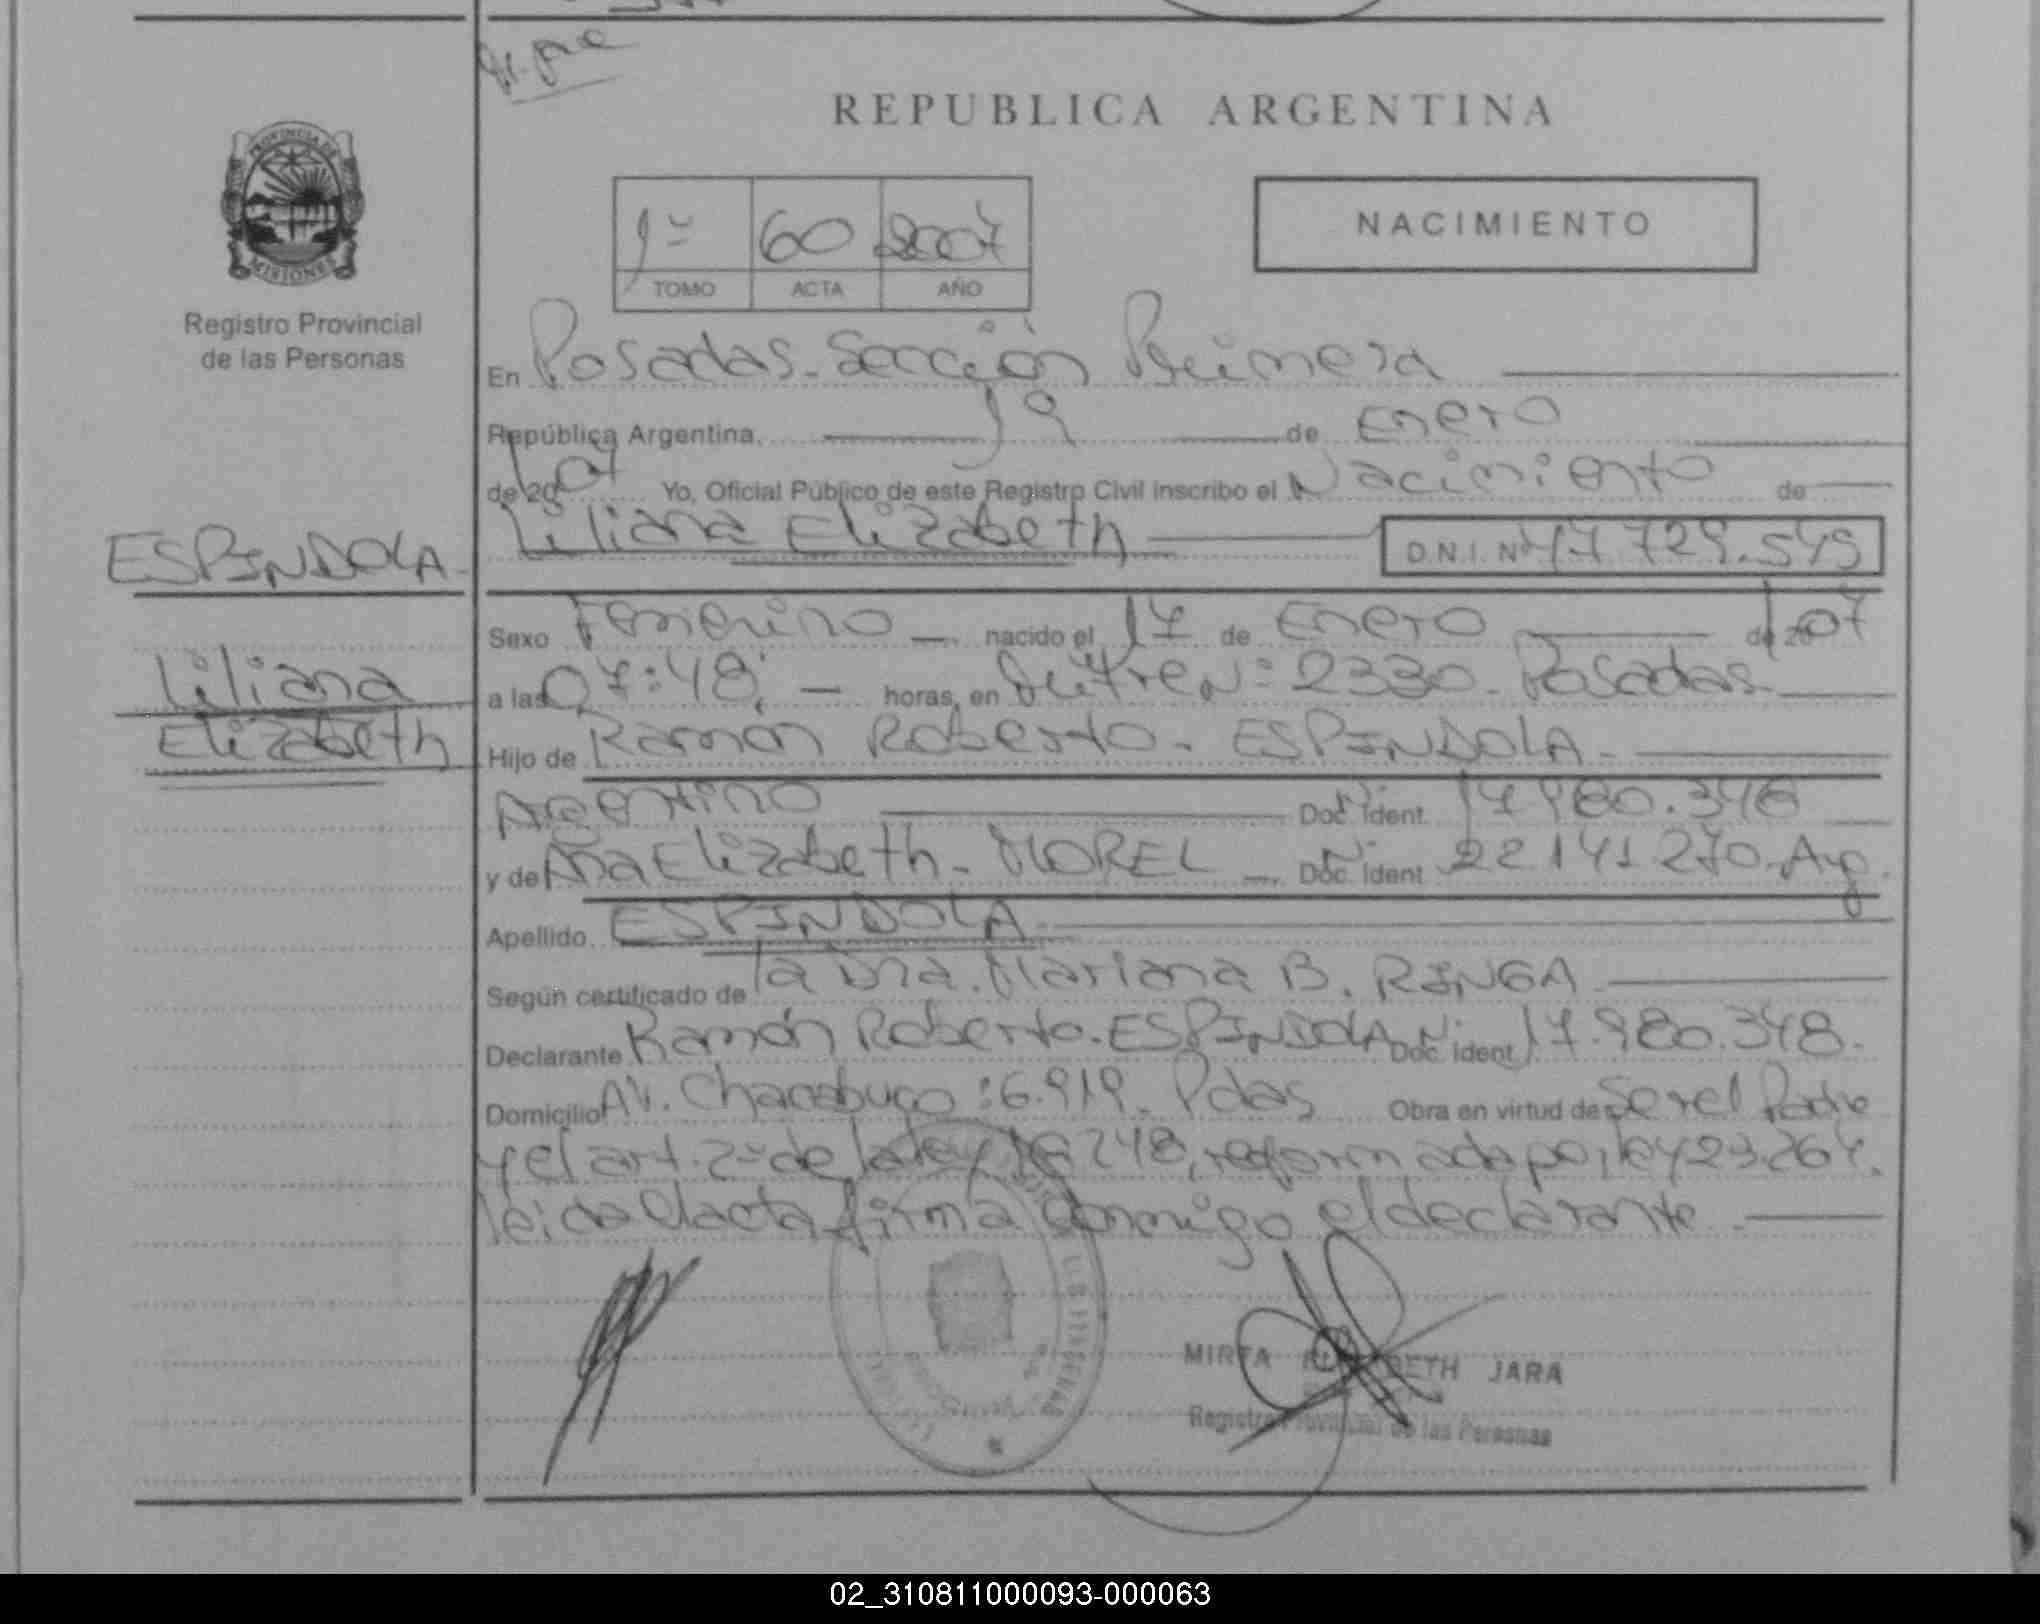 REPUBLICA ARGENTINA
PROVINCIA DE
MISIONES
Registro Provincial
de las Personas
1º 60 2007
TOMO ACTA AÑO
NACIMIENTO
En Posadas - Sección Primera
República Argentina, 19 de Enero
de 2007 Yo, Oficial Público de este Registro Civil inscribo el Nacimiento de
Liliana Elizabeth D.N.I. Nº 47.729.549
ESPINDOLA
Liliana
Elizabeth
Sexo Femenino nacido el 17 de Enero de 2007
a las 07:48 horas, en Nº 2330 - Posadas
Hijo de Ramón Roberto - ESPINDOLA -
Argentino Doc. Ident. Nº 17.980.348
y de Ana Elizabeth - MOREL Doc. Ident. Nº 22.141.270 - Arg.
Apellido ESPINDOLA
Según certificado de la Dra. Mariana B. RINGA
Declarante Ramón Roberto - ESPINDOLA Doc. Ident. Nº 17.980.348.
Domicilio Av. Chacabuco: 6.919 - Pdas Obra en virtud de Ser el Padre
y el art. 2º de la ley 18.248, reformada por ley 23.264.
leída el acta firma conmigo el declarante
MIRTA ELIZABETH JARA
Registro Provincial de las Personas
02_310811000093-000063